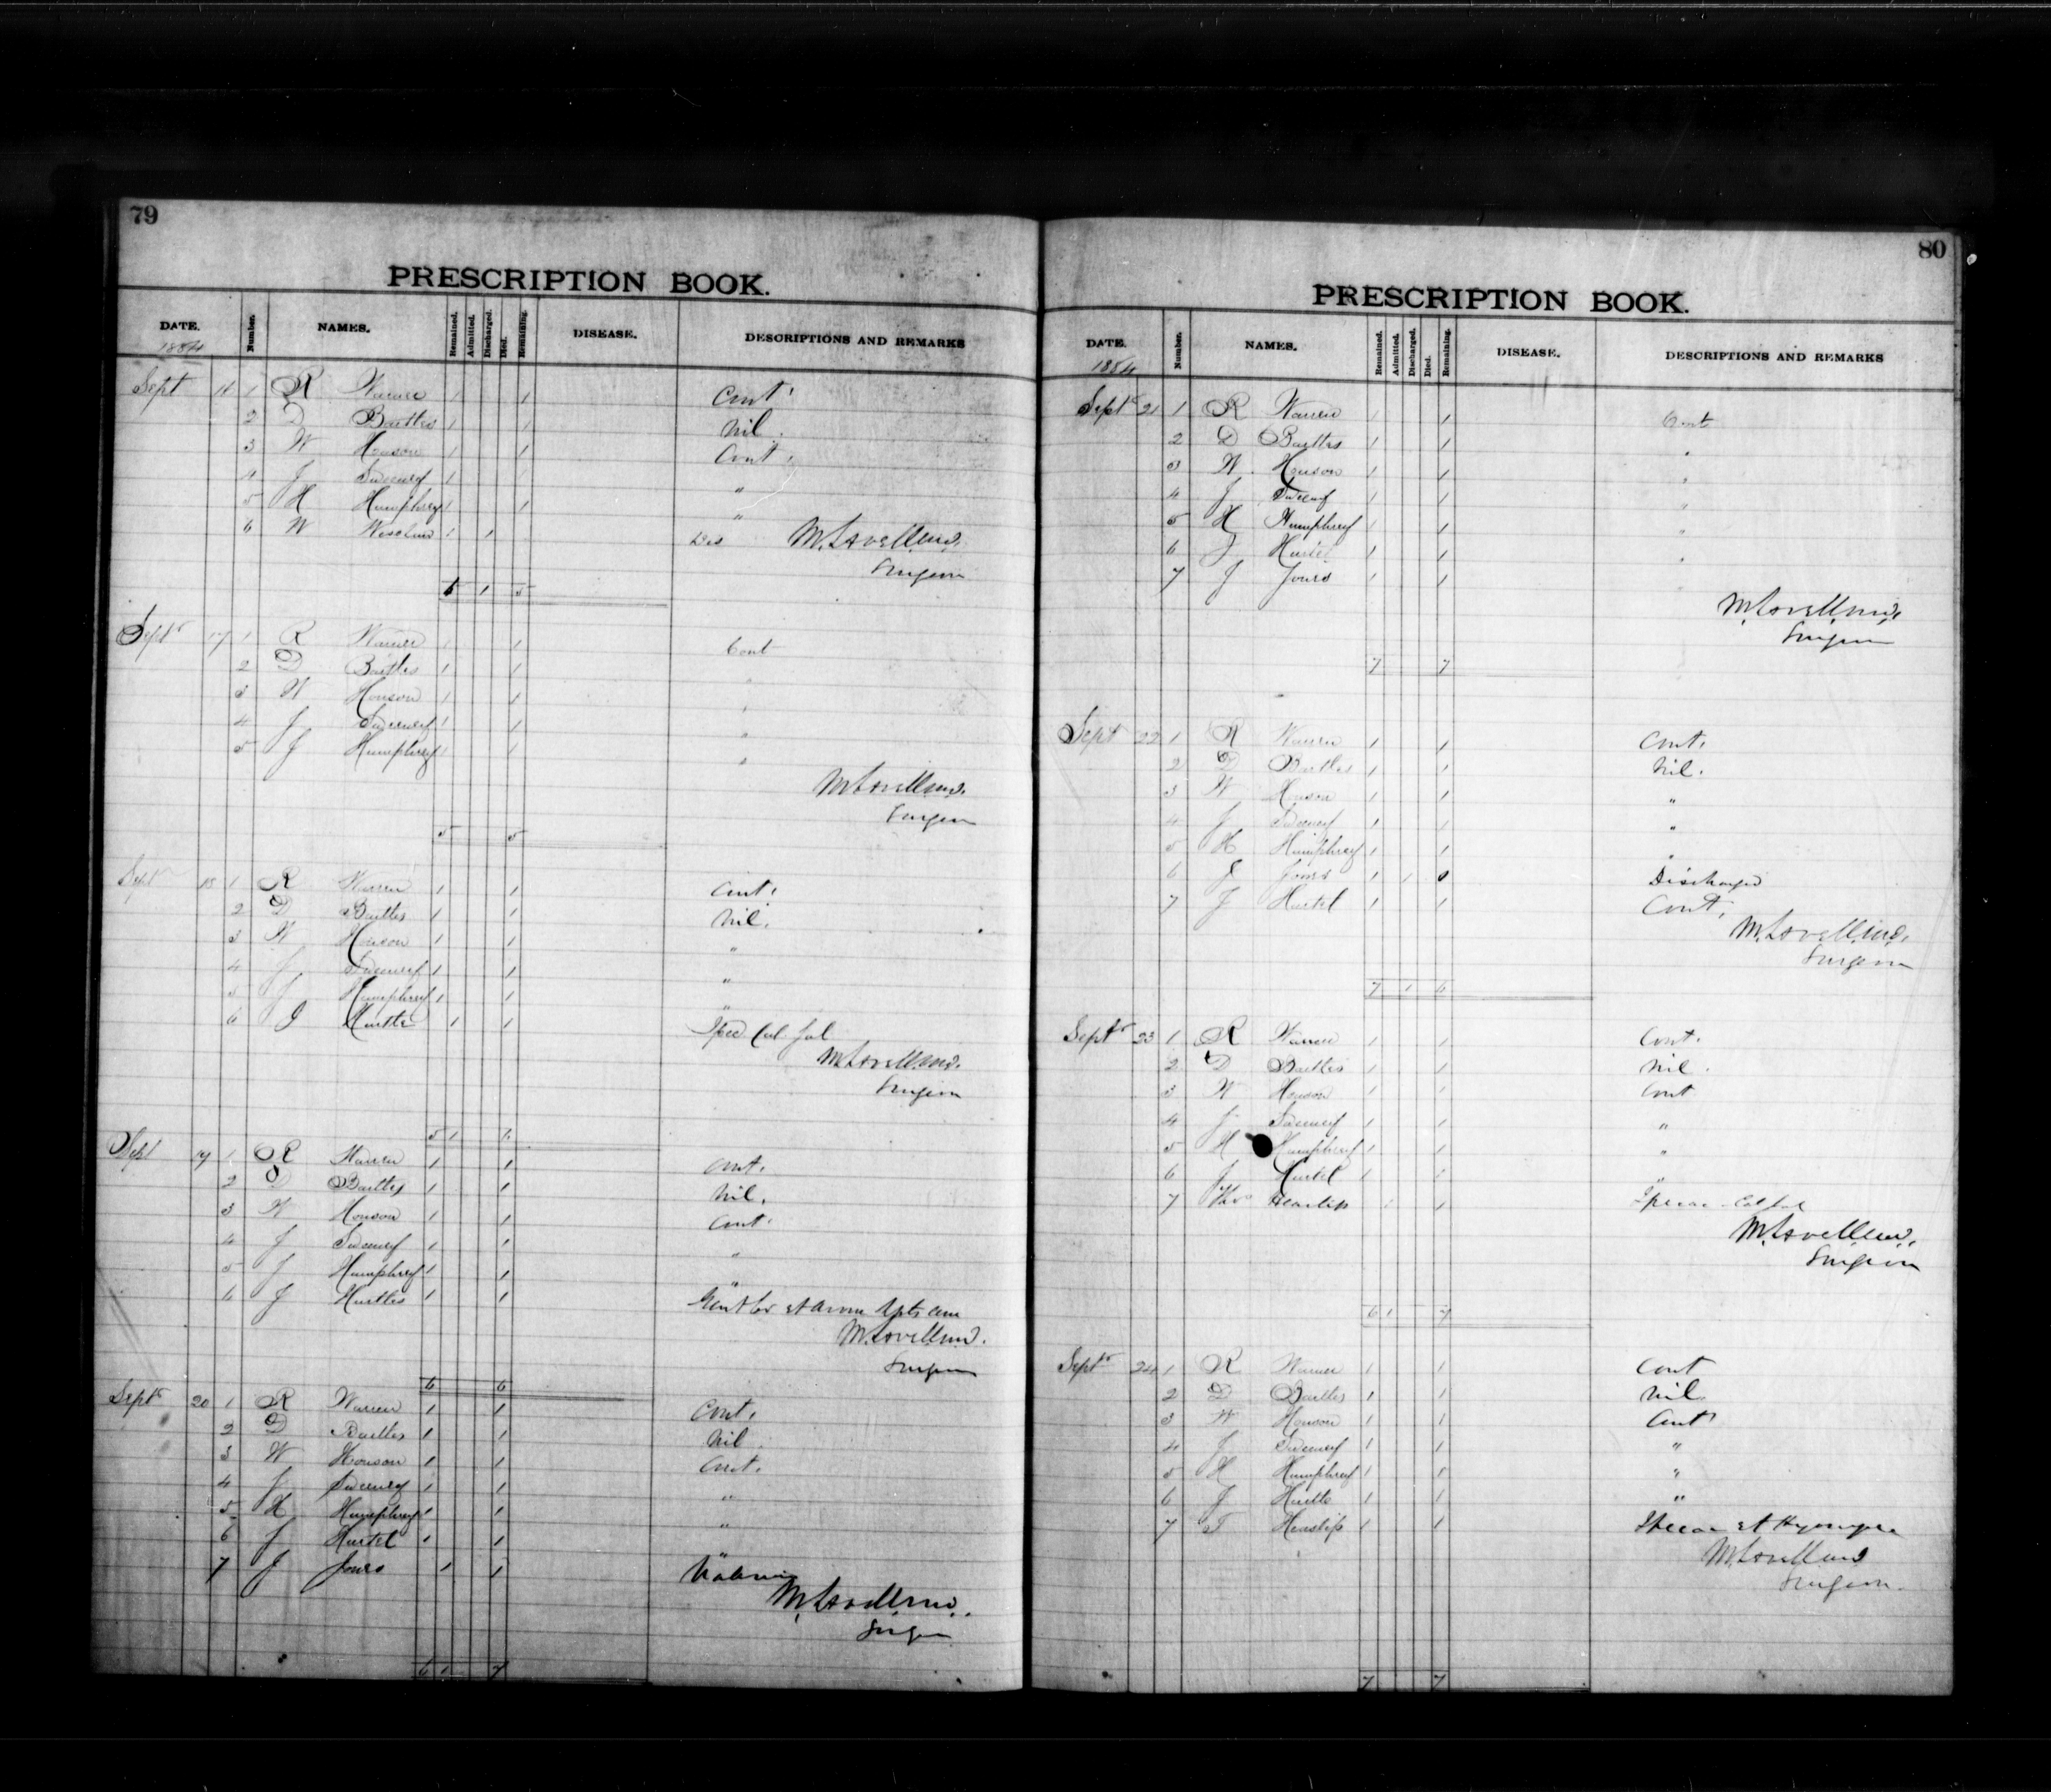 79
PRESCRIPTION BOOK.
DATE. Number. NAMES. Remained. Admitted. Discharged. Died. Remaining. DISEASE. DESCRIPTIONS AND REMARKS
1884
Sept 16 1 R Warren 1 1 Cont.
2 D Bartles 1 1 Nil.
3 W Honson 1 1 Cont.
4 J Sweeney 1 "
5 H Humphrey 1 1 "
6 W 1 1 Dis M. Lavell M.D.
Surgeon
6 1 5
Sept 17 1 R Warren 1 1 Cont
2 D Bartles 1 1 "
3 W Honson 1 1 "
4 J Sweeney 1 1 "
5 J Humphrey 1 1 "
M. Lavell M.D.
Surgeon
5 5
Sept 18 1 R Warren 1 1 Cont.
2 D Bartles 1 1 Nil.
3 W Honson 1 1 "
4 J Sweeney 1 1 "
5 J Humphrey 1 1 "
6 J Hurtle 1 1
M. Lavell M.D.
Surgeon
5 1 6
Sept 19 1 R Warren 1 1 Cont.
2 D Bartles 1 1 Nil.
3 W Honson 1 1 Cont.
4 J Sweeney 1 1 "
5 J Humphrey 1 1 "
6 J Hurtles 1 1
M. Lavell M.D.
Surgeon
6 6
Sept 20 1 R Warren 1 1 Cont.
2 D Bartles 1 1 Nil
3 W Honson 1 1 Cont.
4 J Sweeney 1 1 "
5 H Humphrey 1 1 "
6 J Hurtel 1 1 "
7 J Jones 1 1
M. Lavell M.D.
Surgeon
6 1 7
80
PRESCRIPTION BOOK.
DATE. Number. NAMES. Remained. Admitted. Discharged. Died. Remaining. DISEASE. DESCRIPTIONS AND REMARKS
1884
Sept 21 1 R Warren 1 1 Cont
2 D Bartles 1 1 "
3 W. Honson 1 1 "
4 J Sweeney 1 1 "
5 H Humphrey 1 1 "
6 J Hurtel 1 1 "
7 J Jones 1 1
M. Lavell M.D.
Surgeon
7 7
Sept 22 1 R Warren 1 1 Cont.
2 D Bartles 1 1 Nil.
3 W Honson 1 1 "
4 J Sweeney 1 1 "
5 H Humphrey 1 1 "
6 J Jones 1 1 0 Discharged
7 J Hurtel 1 1 Cont.
M. Lavell M.D.
Surgeon
7 1 6
Sept 23 1 R Warren 1 1 Cont.
2 D Bartles 1 1 Nil.
3 W Honson 1 1 Cont
4 J Sweeney 1 1 "
5 H Humphrey 1 1 "
6 J Hurtel 1 1 "
7 Thos Heaslip 1 1 Ipecac
M. Lavell M.D.
Surgeon
6 1 7
Sept 24 1 R Warren 1 1 Cont
2 D Bartles 1 1 Nil
3 W Honson 1 1 Cont
4 J Sweeney 1 1 "
5 H Humphrey 1 1 "
6 J Hurtle 1 1 "
7 T Heaslip 1 1 Ipecac et
M. Lavell M.D.
Surgeon
7 7